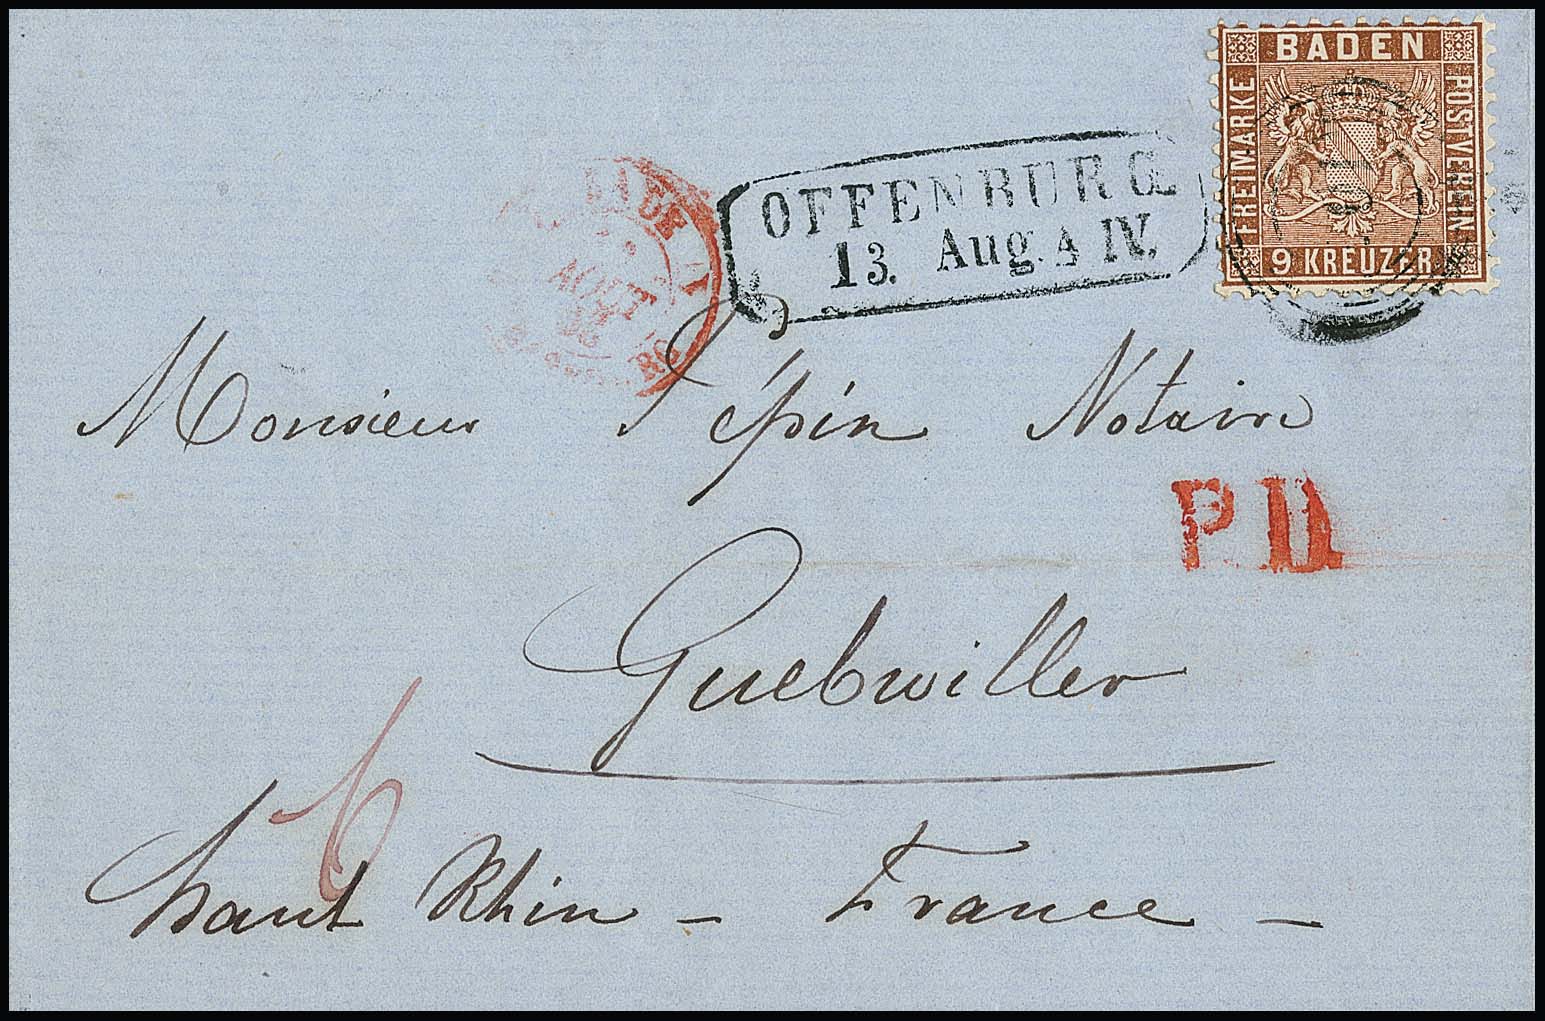 BADEN
FREIMARKE
POSTVEREIN
9 KREUZER
OFFENBURG
13. Aug. 4 IV.
AOUT
Monsieur Pépin Notaire
P.D.
Guebwiller
6
haut Rhin – France –